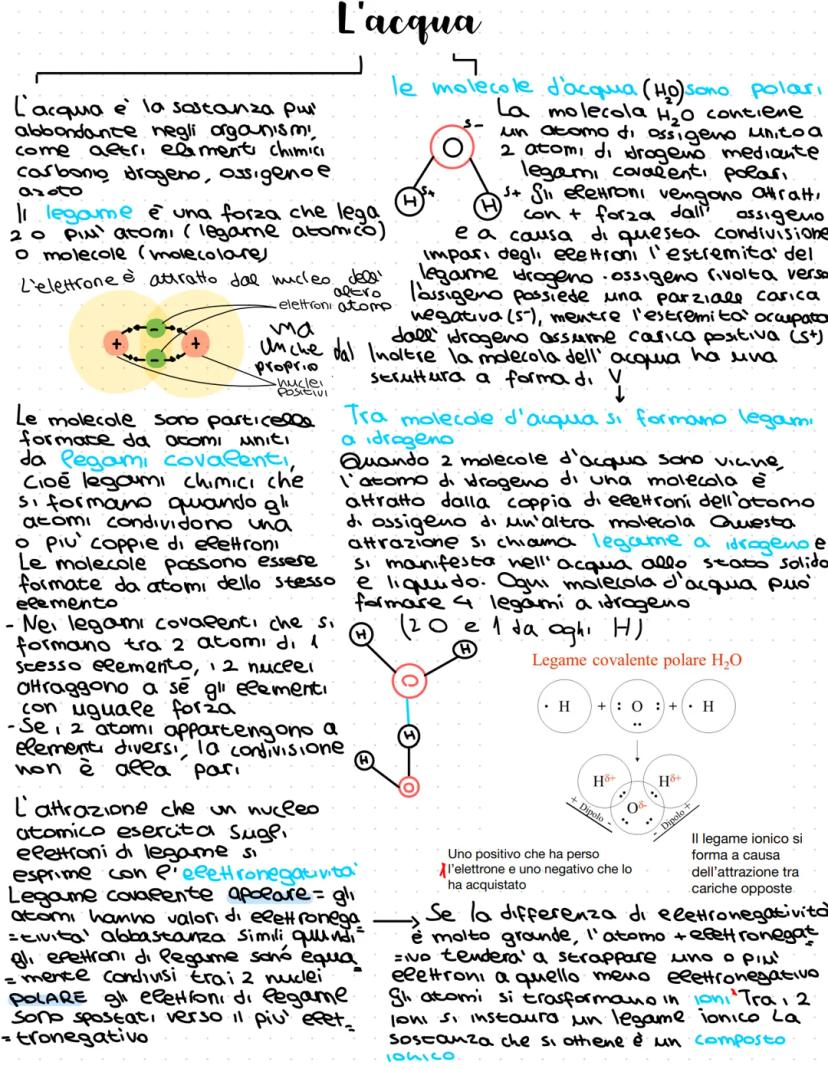 L'acqua
L'acqua è la sostanza piu'
abbondante negli organismi,
come altri elementi chimici
carbonio idrogeno, ossigeno e
azoto
Il legame è una forza che lega
2 o piu' atomi (legame atomico)
o molecole (molecolare)
L'elettrone è attratto dal nucleo dell'
altro
atomo
elettroni
ma
anche dal
proprio
nuclei
positivi
+
-
-
+
Le molecole sono particelle
formate da atomi uniti
da legami covalenti,
cioè legami chimici che
si formano quando gli
atomi condividono una
o piu' coppie di elettroni
Le molecole possono essere
formate da atomi dello stesso
elemento
- Nei legami covalenti che si
formano tra 2 atomi di 1
stesso elemento, i 2 nuclei
attraggono a sé gli elementi
con uguale forza
- Se i 2 atomi appartengono a
elementi diversi, la condivisione
non è alla pari
L'attrazione che un nucleo
atomico esercita sugli
elettroni di legame si
esprime con l'elettronegativita'
Legame covalente apolare = gli
atomi hanno valori di elettronega
=tivita' abbastanza simili quindi
gli elettroni di legame sono equa
=mente condivisi tra i 2 nuclei
POLARE gli elettroni di legame
sono spostati verso il piu' elet=
=tronegativo
le molecole d'acqua (H2O) sono polari
La molecola H2O contiene
un atomo di ossigeno unito a
2 atomi di idrogeno mediante
legami covalenti polari.
Gli elettroni vengono attratti
con + forza dall' ossigeno
e a causa di questa condivisione
impari degli elettroni l'estremita' del
legame idrogeno-ossigeno rivolta verso
l'ossigeno possiede una parziale carica
negativa (s-), mentre l'estremita' occupata
dall' idrogeno assume carica positiva (s+)
Inoltre la molecola dell' acqua ha una
struttura a forma di V
s-
O
H s+
H s+
Tra molecole d'acqua si formano legami
a idrogeno
Quando 2 molecole d'acqua sono vicine,
l'atomo di idrogeno di una molecola è
attratto dalla coppia di elettroni dell'atomo
di ossigeno di un'altra molecola Questa
attrazione si chiama legame a idrogeno e
si manifesta nell' acqua allo stato solido
e liquido. Ogni molecola d'acqua puo'
formare 4 legami a idrogeno
(2 O e 1 da ogni H)
H
H
O
H
H
O
Legame covalente polare H2O
· H + : O : + · H
··
Hδ+ Hδ+
Oδ-
+ Dipolo -
- Dipolo +
Uno positivo che ha perso
l'elettrone e uno negativo che lo
ha acquistato
Il legame ionico si
forma a causa
dell'attrazione tra
cariche opposte
Se la differenza di elettronegatività
è molto grande, l'atomo + elettronegat
=ivo tendera' a strappare uno o piu'
elettroni a quello meno elettronegativo
Gli atomi si trasformano in ioni Tra i 2
ioni si instaura un legame ionico La
sostanza che si ottiene è un composto
ionico